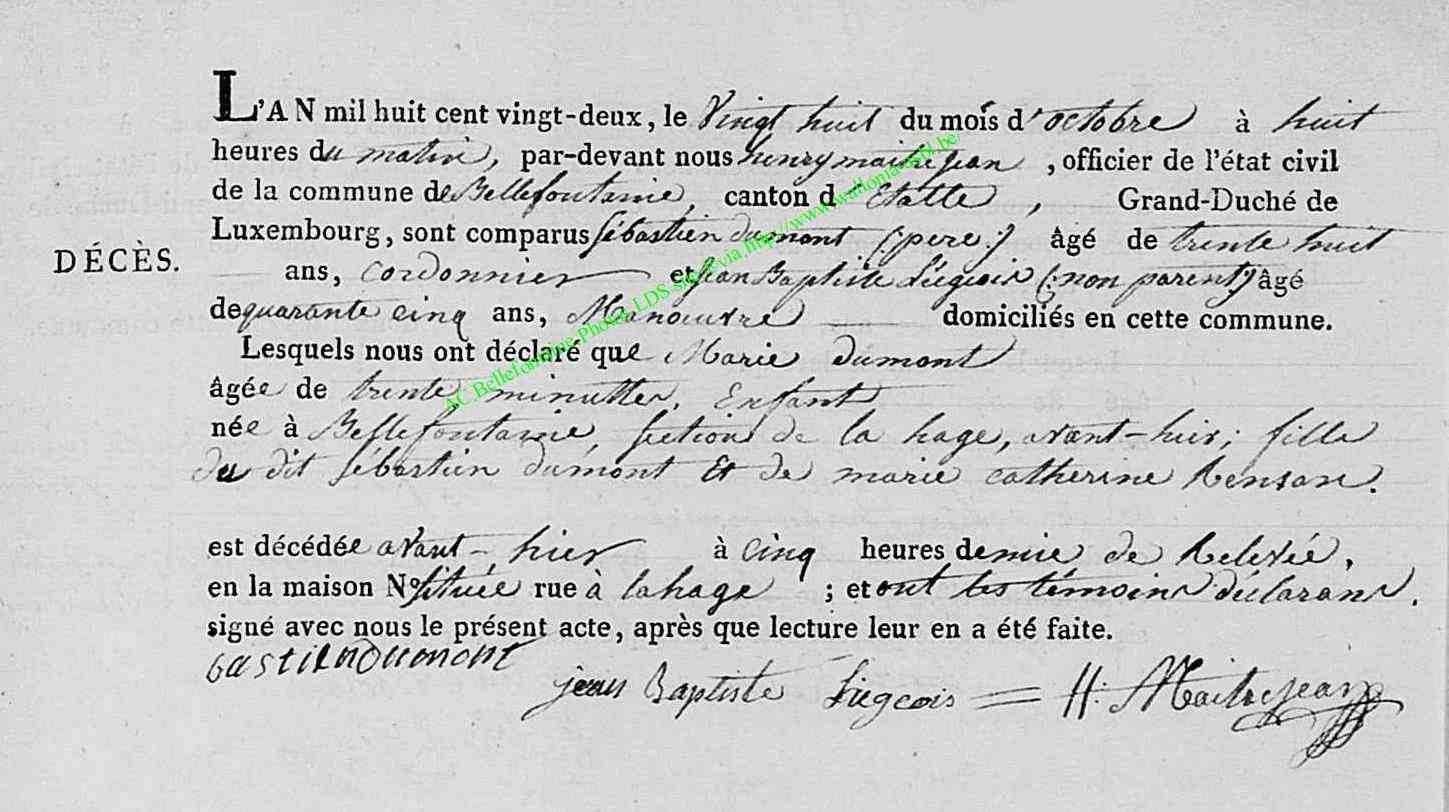 L'AN mil huit cent vingt-deux, le Vingt huit du mois d'octobre à huit
heures du matin, par-devant nous henry maitrejean, officier de l'état civil
de la commune de Bellefontaine, canton d Etalle, Grand-Duché de
Luxembourg, sont comparus sébastien dumont (:pere:) âgé de trente huit
DÉCÈS.
ans, Cordonnier et jean Baptiste Liégeois (:non parent) âgé
de quarante cinq ans, Manoeuvre domiciliés en cette commune.
Lesquels nous ont déclaré que Marie dumont
âgée de trente minuttes, Enfant
née à Bellefontaine, section de la hage, avant-hier; fille
du dit sébastien dumont Et de marie catherine Renson.
est décédée avant-hier à Cinq heures demie de Relevée,
en la maison N° située rue à lahage ; et ont les témoins déclarans.
signé avec nous le présent acte, après que lecture leur en a été faite.
bastiendumont
jean Baptiste Liegeois = H. Maitrejean
AC Bellefontaine, Photos LDS